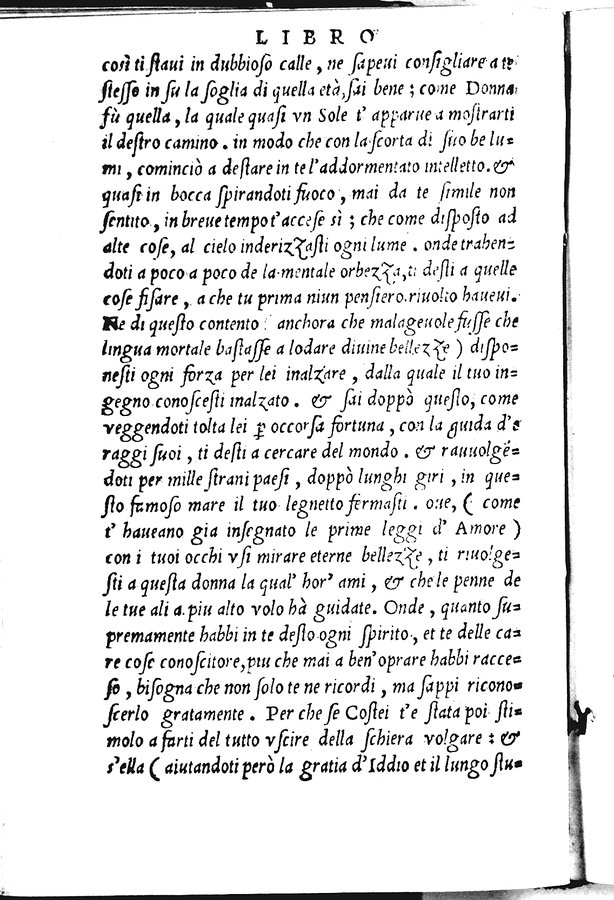 LIBRO
così ti staui in dubbioso calle, ne sapeui consigliare a te
stesso in su la soglia di quella età, sai bene; come Donna
fù quella, la quale quasi vn Sole t' apparue a mostrarti
il destro camino. in modo che con la scorta di suo be lu-
mi, cominciò a destare in te l'addormentato intelletto. &
quasi in bocca spirandoti fuoco, mai da te simile non
sentito, in breue tempo t'accese sì; che come disposto ad
alte cose, al cielo inderizzasti ogni lume. onde trahen-
doti a poco a poco de la mentale orbezza, ti desti a quelle
cose fisare, a che tu prima niun pensiero riuolto haueui.
Ne di questo contento anchora che malageuole fusse che
lingua mortale bastasse a lodare diuine bellezze) dispo-
nesti ogni forza per lei inalzare, dalla quale il tuo in-
gegno conoscesti inalzato. & sai doppò questo, come
veggendoti tolta lei ꝑ occorsa fortuna, con la guida d'e
raggi suoi, ti desti a cercare del mondo. & rauuolgẽ-
doti per mille strani paesi, doppò lunghi giri, in que-
sto famoso mare il tuo legnetto fermasti. oue, (come
t' haueano gia insegnato le prime leggi d' Amore)
con i tuoi occhi vsi mirare eterne bellezze, ti riuolge-
sti a questa donna la qual' hor' ami, & che le penne de
le tue ali a piu alto volo hà guidate. Onde, quanto su-
premamente habbi in te desto ogni spirito, et te delle ca-
re cose conoscitore, piu che mai a ben' oprare habbi racce-
so, bisogna che non solo te ne ricordi, ma sappi ricono-
scerlo gratamente. Per che se Costei t'e stata poi sti-
molo a farti del tutto vscire della schiera volgare: &
s'ella (aiutandoti però la gratia d'Iddio et il lungo stu-